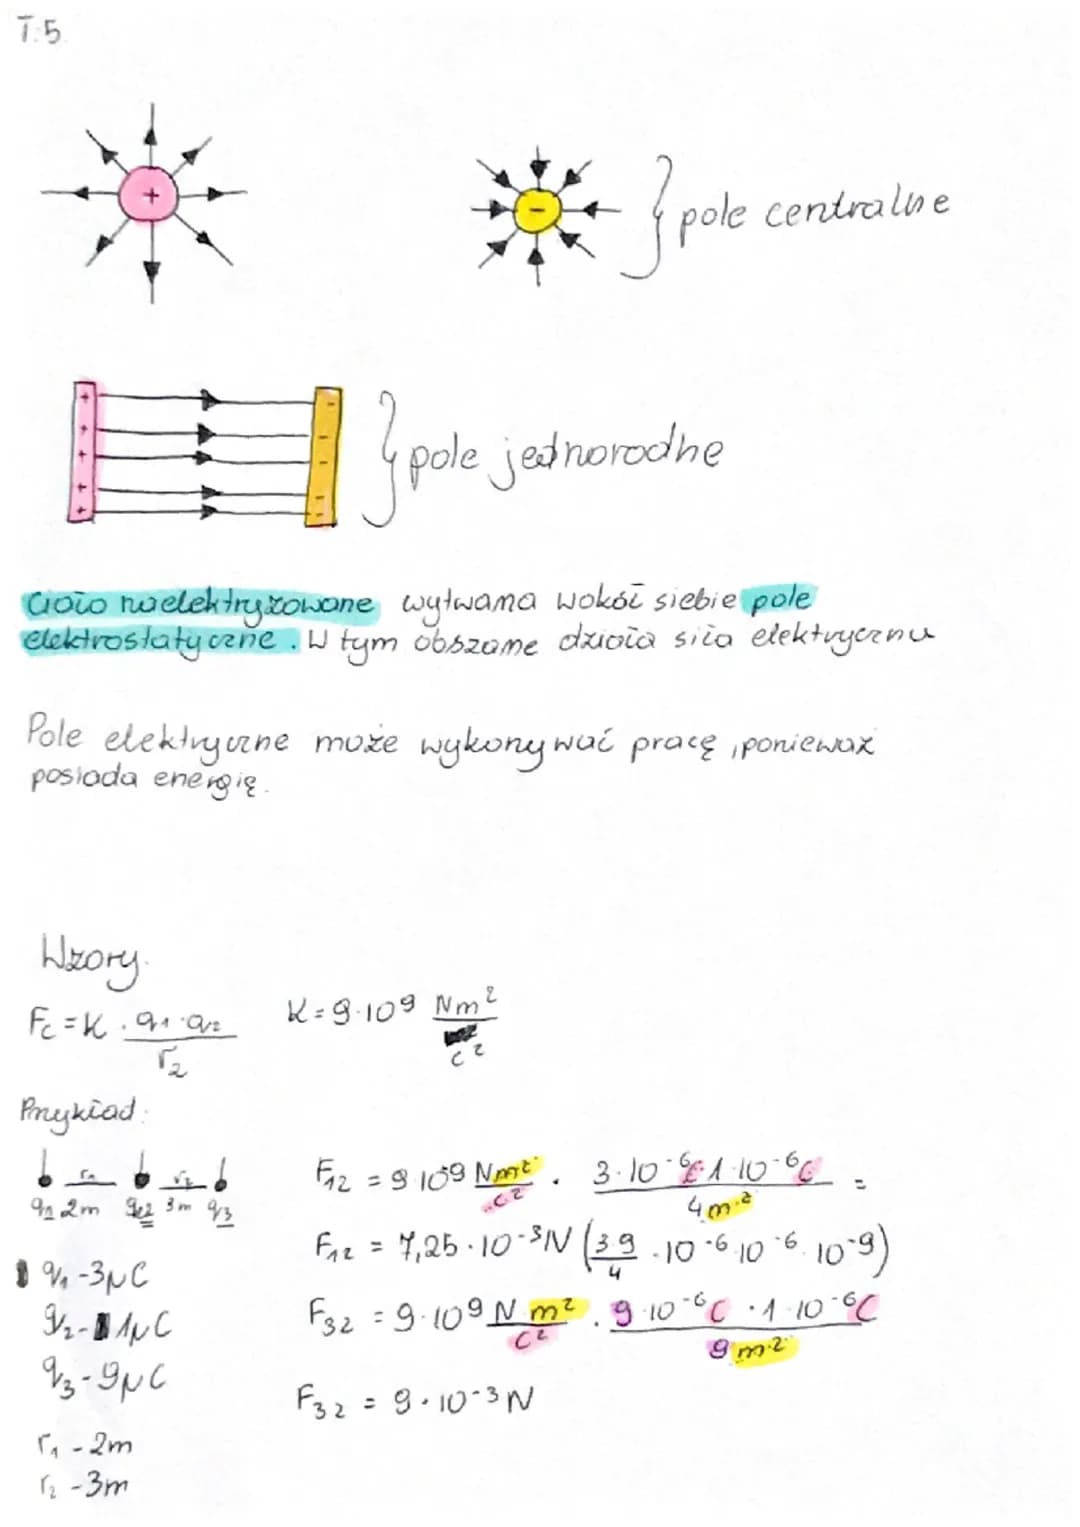 T:5.
+
-
pole centralne
+ -
+ -
+ -
+ -
+ -
pole jednorodne
Ciało naelektryzowane wytwarza wokół siebie pole
elektrostatyczne. W tym obszarze działa siła elektryczna
Pole elektryczne może wykonywać pracę, ponieważ
posiada energię.
Wzory.
Fc = K · q1 · q2 / r2
K = 9·10⁹ Nm² / C²
Przykład:
r1 r2
q1 2m q2 3m q3
q1 - 3μC
q2 - 1μC
q3 - 9μC
r1 - 2m
r2 - 3m
F12 = 9·10⁹ Nm² / C² · 3·10⁻⁶C·1·10⁻⁶C / 4m² =
F12 = 7,25·10⁻³N (3·9 / 4 · 10⁻⁶·10⁻⁶·10⁻⁹)
F32 = 9·10⁹ N m² / C² · 9·10⁻⁶C · 1·10⁻⁶C / 9m²
F32 = 9·10⁻³N